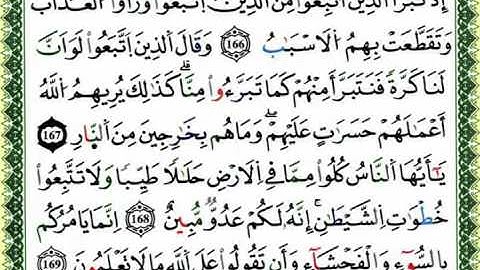 إِذْ تَبَرَّأَ اَ۬لذِينَ اَتُّبِعُواْ مِنَ اَ۬لذِينَ اَتَّبَعُواْ وَرَأَوُاْ اُ۬لْعَذَابَ
وَتَقَطَّعَتْ بِهِمُ اُ۬لَاسْبَٰبُ 166 وَقَالَ اَ۬لذِينَ اَتَّبَعُواْ لَوَ اَنَّ
لَنَا كَرَّةً فَنَتَبَرَّأَ مِنْهُمْ كَمَا تَبَرَّءُواْ مِنَّاۖ كَذَٰلِكَ يُرِيهِمُ اُ۬للَّهُ
أَعْمَٰلَهُمْ حَسَرَٰتٍ عَلَيْهِمْۖ وَمَا هُم بِخَٰرِجِينَ مِنَ اَ۬لنّ۪ارِ 167
يَٰٓأَيُّهَا اَ۬لنَّاسُ كُلُواْ مِمَّا فِے اِ۬لَارْضِ حَلَٰلًا طَيِّبًا وَلَا تَتَّبِعُواْ
خُطْوَٰتِ اِ۬لشَّيْطَٰنِۖ إِنَّهُۥ لَكُمْ عَدُوٌّ مُّبِينٌ 168 إِنَّمَا يَامُرُكُم
بِالسُّوٓءِ وَالْفَحْشَآءِ وَأَن تَقُولُواْ عَلَى اَ۬للَّهِ مَا لَا تَعْلَمُونَ 169